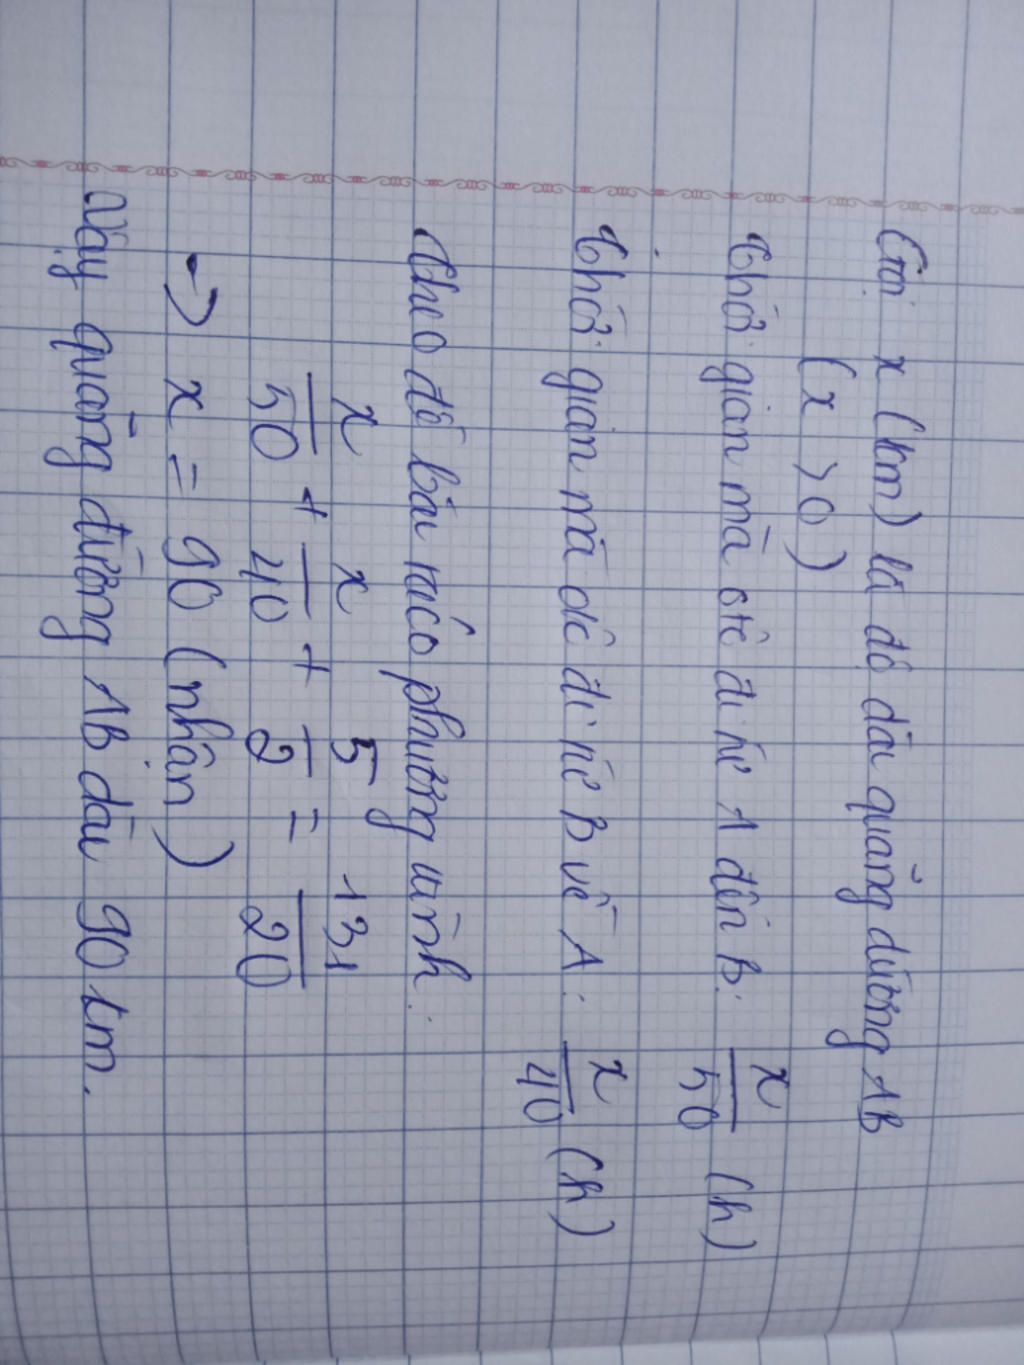 Gọi x (km) là độ dài quãng đường AB
(x > 0)
Thời gian mà ôtô đi từ A đến B: x/50 (h)
Thời gian mà ôtô đi từ B về A: x/40 (h)
Theo đề bài ta có phương trình:
x/50 + x/40 + 5/2 = 131/20
→ x = 90 (nhận)
Vậy quãng đường AB dài 90 km.